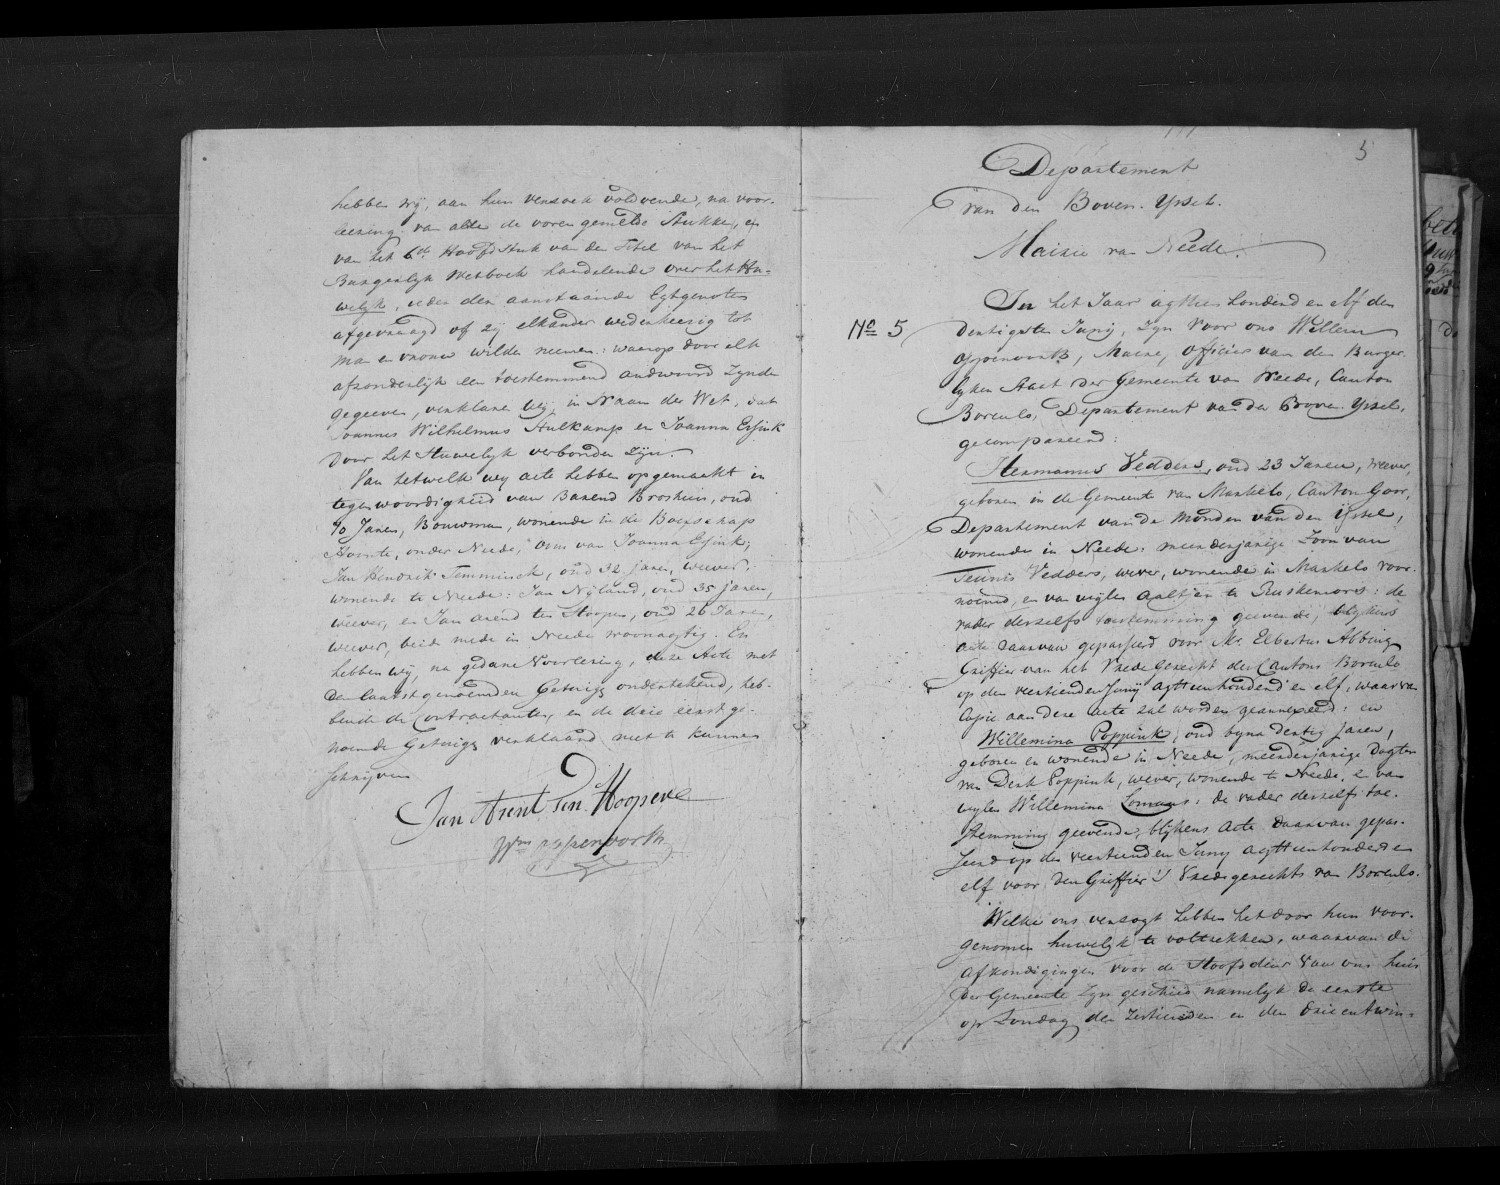 hebben wij, aan hun versoek voldoende, na voor-
leezing van alde de voren gemelde Stukken, en
van het 6de Hoofdstuk van den Titel van het
Burgerlijk Wetboek handelende over het Hu-
welyk, ieder den aanstaande Egtgenoten
afgevraagd of zij elkander wederkeerig tot
man en vrouw wilden neemen: waarop door elk
afzonderlijk een toestemmend andwoord zynde
gegeeven, verklaren wij in Naam der Wet, dat
Joannes Wilhelmus Hulkamp en Joanna Essink
door het Huwelyk verbonden zyn.
Van hetwelk wy acte hebben opgemaakt in
tegenwoordigheid van Barend Broshuis, oud
70 Jaren, Bouwman, wonende in de Boerschap
Hoonte, onder Neede, oom van Joanna Essink,
Jan Hendrik Temminck, oud 32 jaren, weever,
wonende te Neede: Jan Nyland, oud 35 jaren,
weever, en Jan Arend ten Hoopen, oud 26 Jaren,
weever, beide mede in Neede woonagtig. En
hebben wij, na gedane Voorlezing, deze Acte met
den laatstgenoemden Getuige onderteekend, heb-
bende de Contractanten, en de drie eerst ge-
noemde Getuigen verklaard niet te kunnen
schrijven
Jan Arent Ten Hoopen
Wm oppenoorth
5
Departement
van den Boven-Yssel.
Mairie van Neede.
No 5
In het Jaar agttien honderd en elf den
dertigsten Juny, zyn voor ons Willem
oppenoorth, Maire, officier van den Burger-
lyken Staet der Gemeente van Neede, Canton
Borculo, Departement van den Boven-Yssel,
gecompareerd:
Hermannus Vedders, oud 23 Jaren, weever,
geboren in de Gemeente van Markelo, Canton Goor,
Departement van de Monden van den Yssel,
wonende in Neede: meerderjarige Zoon van
Teunis Vedders, wever, wonende in Markelo voor-
noemd, en van wylen Aaltjen
vader derzelfs toestemming geevende, blykens
acte daarvan gepasseerd voor Mr. Elbertus Abbing
Griffier van het Vrede Gerecht des Cantons Borculo
op den veertienden Juny agttienhonderd en elf, waarvan
Copie aan deze acte zal worden geannexeerd: en
Willemina Poppink, oud byna dertig jaren,
geboren en wonende in Neede, meerderjarige Dogter
van Derk Poppink, wever, wonende te Neede, en van
wylen Willemina Lomans: de vader derzelfs toe-
stemming geevende, blijkens Acte daarvan gepas-
seerd op den veertienden Juny agttienhonderd en
elf voor den Griffier 's Vredegerechts van Borculo.
Welke ons versogt hebben het door hun voor-
genomen huwelyk te voltrekken, waarvan de
afkondigingen voor de Hoofddeur van ons huis
der Gemeente zyn geschied namelyk de eerste
op Zondag den zestienden en den drieentwin-